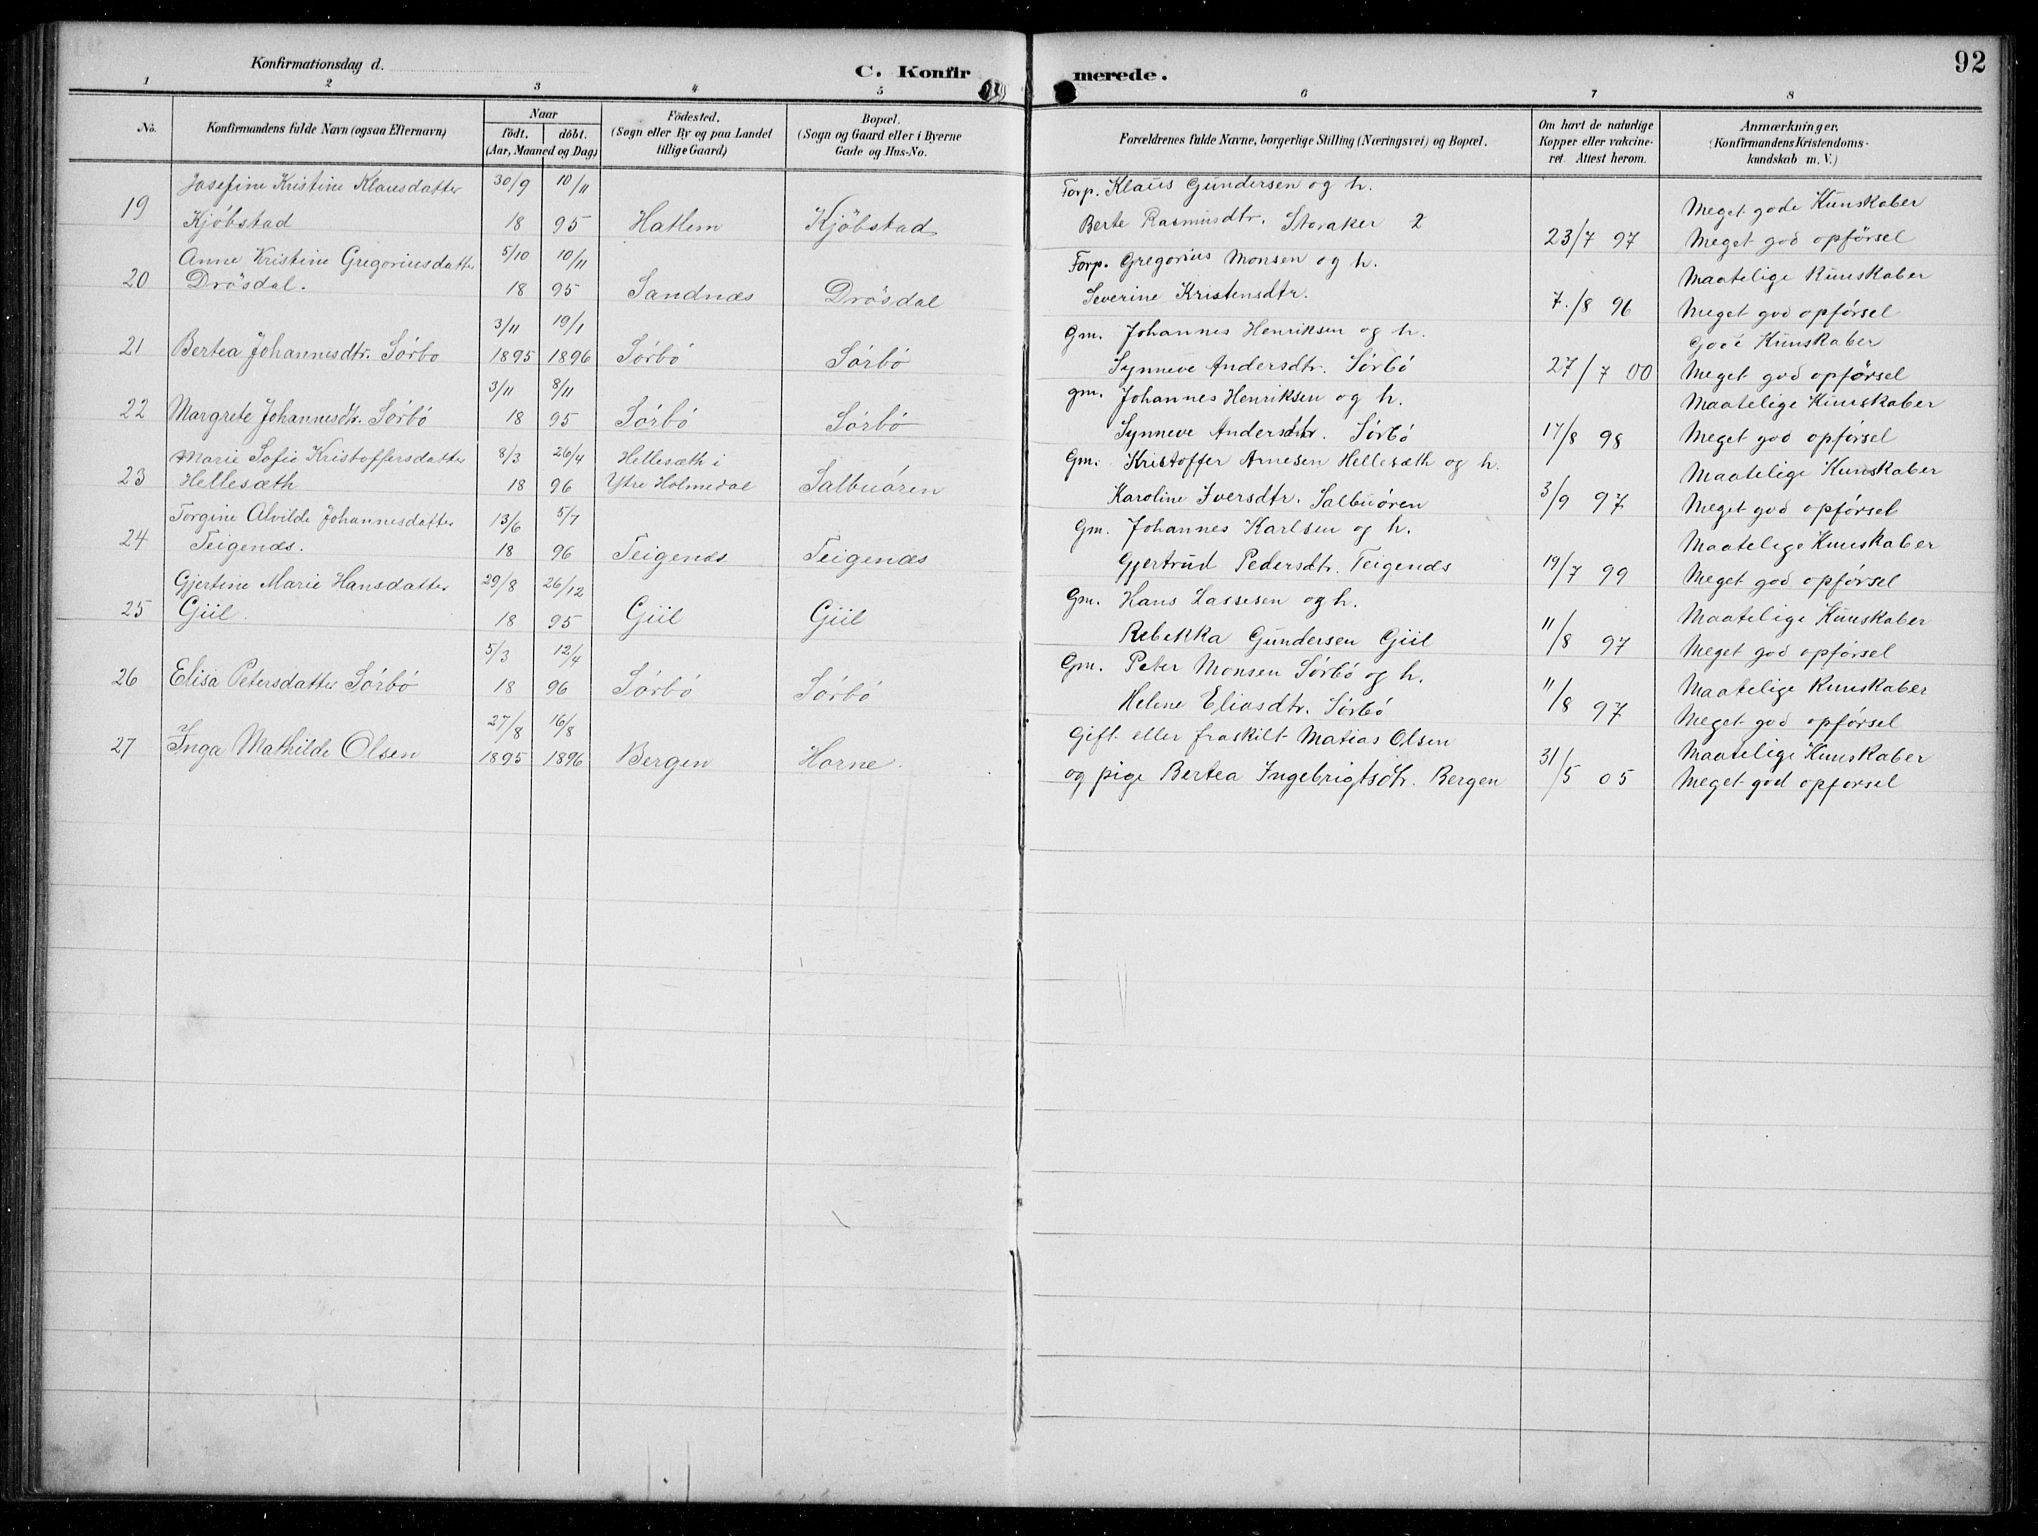 92
Konfirmationsdag d.
C. Konfirmerede.
1 2 3 4 5 6 7 8
No. Konfirmandens fulde Navn (ogsaa Efternavn)
Naar
födt. döbt.
(Aar, Maaned og Dag)
Födested.
(Sogn eller By og paa Landet
tillige Gaard)
Bopæl.
(Sogn og Gaard eller i Byerne
Gade og Hus-No.
Forældrenes fulde Navne, borgerlige Stilling (Næringsvei) og Bopæl.
Om havt de naturlige
Kopper eller vakcine-
ret. Attest herom.
Anmærkninger.
(Konfirmandens Kristendoms-
kundskab m. V.)
Josefine Kristine Klausdatter 30/9 10/11 Forp. Klaus Gundersen og h. Meget gode Kunskaber
19 Kjöbstad 18 95 Hatlem Kjöbstad Berte Rasmusdtr. Storaker 2 23/7 97 Meget god opförsel
Anne Kristine Gregoriusdatter 5/10 10/11 Forp. Gregorius Monsen og h. Maatelige Kunskaber
20 Drösdal. 18 95 Sandnæs Drösdal Severine Kristensdtr. 7./8 96 Meget god opförsel
3/11 19/1 Gm. Johannes Henriksen og h. Gode Kunskaber
21 Bertea Johannesdtr. Sörbö 1895 1896 Sörbö Sörbö Synneve Andersdtr. Sörbö 27/7 00 Meget god opförsel
3/11 8/11 gm. Johannes Henriksen og h. Maatelige Kunskaber
22 Margrete Johannesdtr. Sörbö 18 95 Sörbö Sörbö Synneve Andersdtr. Sörbö 17/8 98 Meget god opförsel
Marie Sofie Kristoffersdatter 8/3 26/4 Hellesæth i Gm. Kristoffer Arnesen Hellesæth og h. Maatelige Kunskaber
23 Hellesæth 18 96 Ytre Holmedal Salbuören Karoline Iversdtr. Salbuören 3/9 97 Meget god opförsel
Torgine Alvilde Johannesdatter 13/6 5/7 Gm. Johannes Karlsen og h. Maatelige Kunskaber
24 Teigenæs. 18 96 Teigenæs Teigenæs Gjertrud Pedersdtr. Teigenæs 19/7 99 Meget god opförsel
Gjertine Marie Hansdatter 29/8 26/12 Gm. Hans Lassesen og h. Maatelige Kunskaber
25 Giil. 18 95 Giil Giil Rebekka Gundersen Giil 11/8 97 Meget god opförsel
5/3 12/4 Gm. Peter Monsen Sörbö og h. Maatelige Kunskaber
26 Elisa Petersdatter Sörbö 18 96 Sörbö Sörbö Helene Eliasdtr. Sörbö 11/8 97 Meget god opförsel
27/8 16/8 Gift eller fraskilt Matias Olsen Maatelige Kunskaber
27 Inga Mathilde Olsen 1895 1896 Bergen Horne. og pige Bertea Ingebrigtsdtr. Bergen 31/5 05 Meget god opförsel